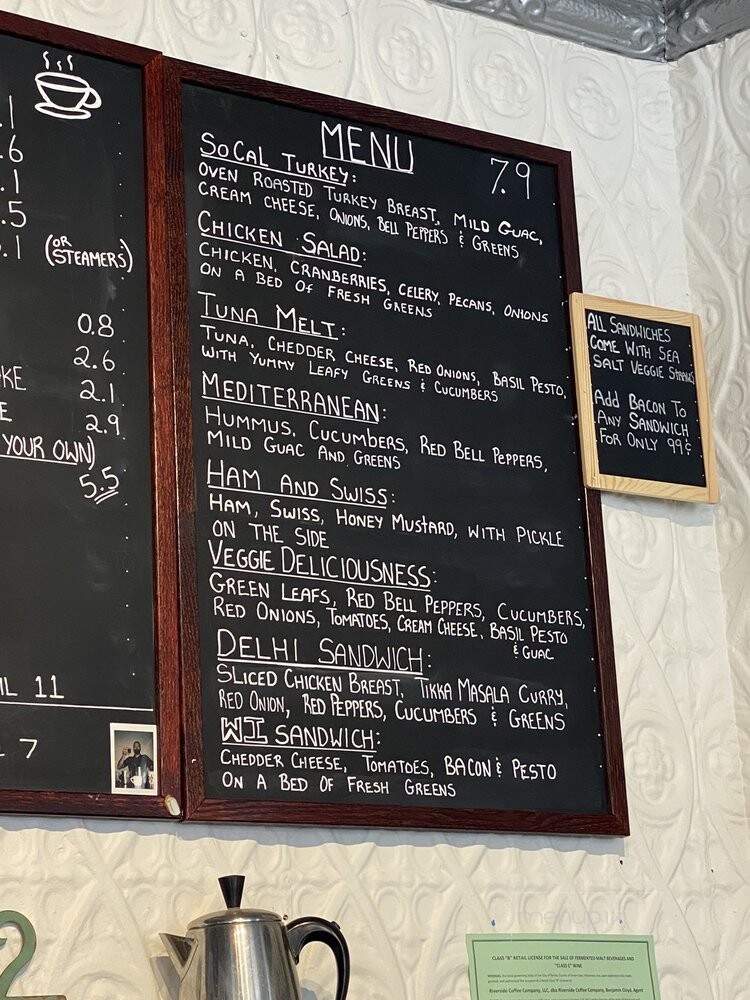 .1
.6
.1
.5
.1 (OR STEAMERS)
0.8
2.6
KE 2.1
E 2.9
YOUR OWN)
5.5
IL 11
7
MENU 7.9
SOCAL TURKEY:
OVEN ROASTED TURKEY BREAST, MILD GUAC,
CREAM CHEESE, ONIONS, BELL PEPPERS & GREENS
CHICKEN SALAD:
CHICKEN, CRANBERRIES, CELERY, PECANS, ONIONS
ON A BED OF FRESH GREENS
TUNA MELT:
TUNA, CHEDDER CHEESE, RED ONIONS, BASIL PESTO,
WITH YUMMY LEAFY GREENS & CUCUMBERS
MEDITERRANEAN:
HUMMUS, CUCUMBERS, RED BELL PEPPERS,
MILD GUAC AND GREENS
HAM AND SWISS:
HAM, SWISS, HONEY MUSTARD, WITH PICKLE
ON THE SIDE
VEGGIE DELICIOUSNESS:
GREEN LEAFS, RED BELL PEPPERS, CUCUMBERS,
RED ONIONS, TOMATOES, CREAM CHEESE, BASIL PESTO
& GUAC
DELHI SANDWICH:
SLICED CHICKEN BREAST, TIKKA MASALA CURRY,
RED ONION, RED PEPPERS, CUCUMBERS & GREENS
WI SANDWICH:
CHEDDER CHEESE, TOMATOES, BACON & PESTO
ON A BED OF FRESH GREENS
ALL SANDWICHES
COME WITH SEA
SALT VEGGIE STRAWS
Add BACON TO
ANY SANDWICH
FOR ONLY 99¢
CLASS "B" RETAIL LICENSE FOR THE SALE OF FERMENTED MALT BEVERAGES AND
"CLASS C" WINE
Riverside Coffee Company, LLC, dba Riverside Coffee Company, Benjamin Gloyd, Agent